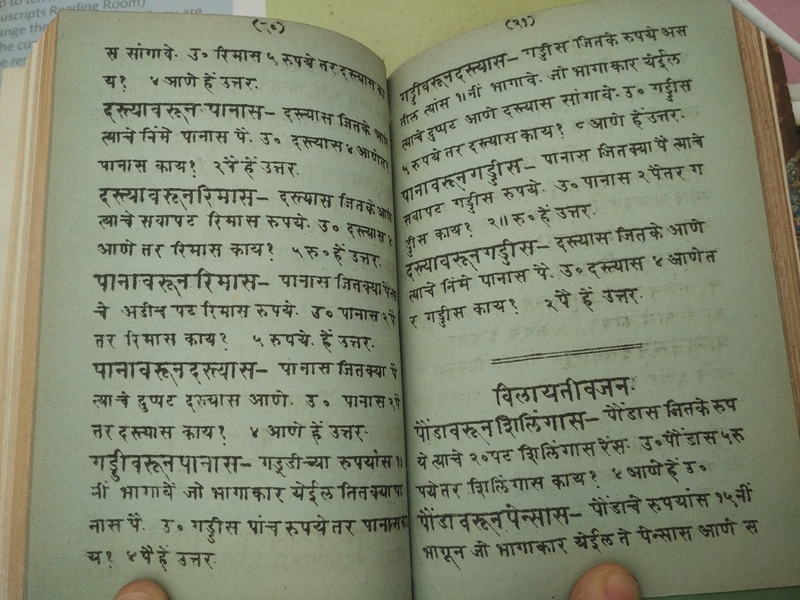 uscripts Reading Room)
(८०)
स सांगावे. उ० रिमास ५ रुपये तर दस्त्यास का
य? ४ आणे हें उत्तर.
दस्त्यावरून पानास— दस्त्यास जितके आणे
त्याचे निंमे पानास पै. उ० दस्त्यास ४ आणेतर
पानास काय? २ पै हें उत्तर.
दस्त्यावरून रिमास— दस्त्यास जितके आणे
त्याचे सवापट रिमास रुपये. उ० दस्त्यास ४
आणे तर रिमास काय? ५ रु० हें उत्तर.
पानावरून रिमास— पानास जितक्या पै
चे अडीच पट रिमास रुपये. उ० पानास २ पै
तर रिमास काय? ५ रुपये. हें उत्तर.
पानावरून दस्त्यास— पानास जितक्या पै
त्याचे दुप्पट दस्त्यास आणे. उ० पानास २ पै
तर दस्त्यास काय? ४ आणे हें उत्तर.
गड्डीवरून पानास— गड्डीच्या रुपयांस १।
नीं भागावें जो भागाकार येईल तितक्या पा
नास पै. उ० गड्डीस पांच रुपये तर पानास का
य? ४ पै हें उत्तर.
(३१)
गड्डीवरून दस्त्यास— गड्डीस जितके रुपये अस
तील त्यांस १।नीं भागावे. जो भागाकार येईल
त्याचे दुप्पट आणे दस्त्यास सांगावे. उ० गड्डीस
५ रुपये तर दस्त्यास काय? ८ आणे हें उत्तर.
पानावरून गड्डीस— पानास जितक्या पै त्याचे
सवापट गड्डीस रुपये. उ० पानास २ पैतर ग
ड्डीस काय? २॥ रु० हें उत्तर.
दस्त्यावरून गड्डीस— दस्त्यास जितके आणे
त्याचे निंमे पानास पै. उ० दस्त्यास ४ आणे त
र गड्डीस काय? २ पै हें उत्तर.
विलायतीवजन.
पौंडावरून शिलिंगास— पौंडास जितके रुप
ये त्याचे २० पट शिलिंगास रेंस. उ० पौंडास ५ रु
पये तर शिलिंगास काय? ४ आणे हें उ०
पौंडावरून पेन्सास— पौंडाचे रुपयांस १५ नीं
भागून जो भागाकार येईल ते पेन्सास आणे स